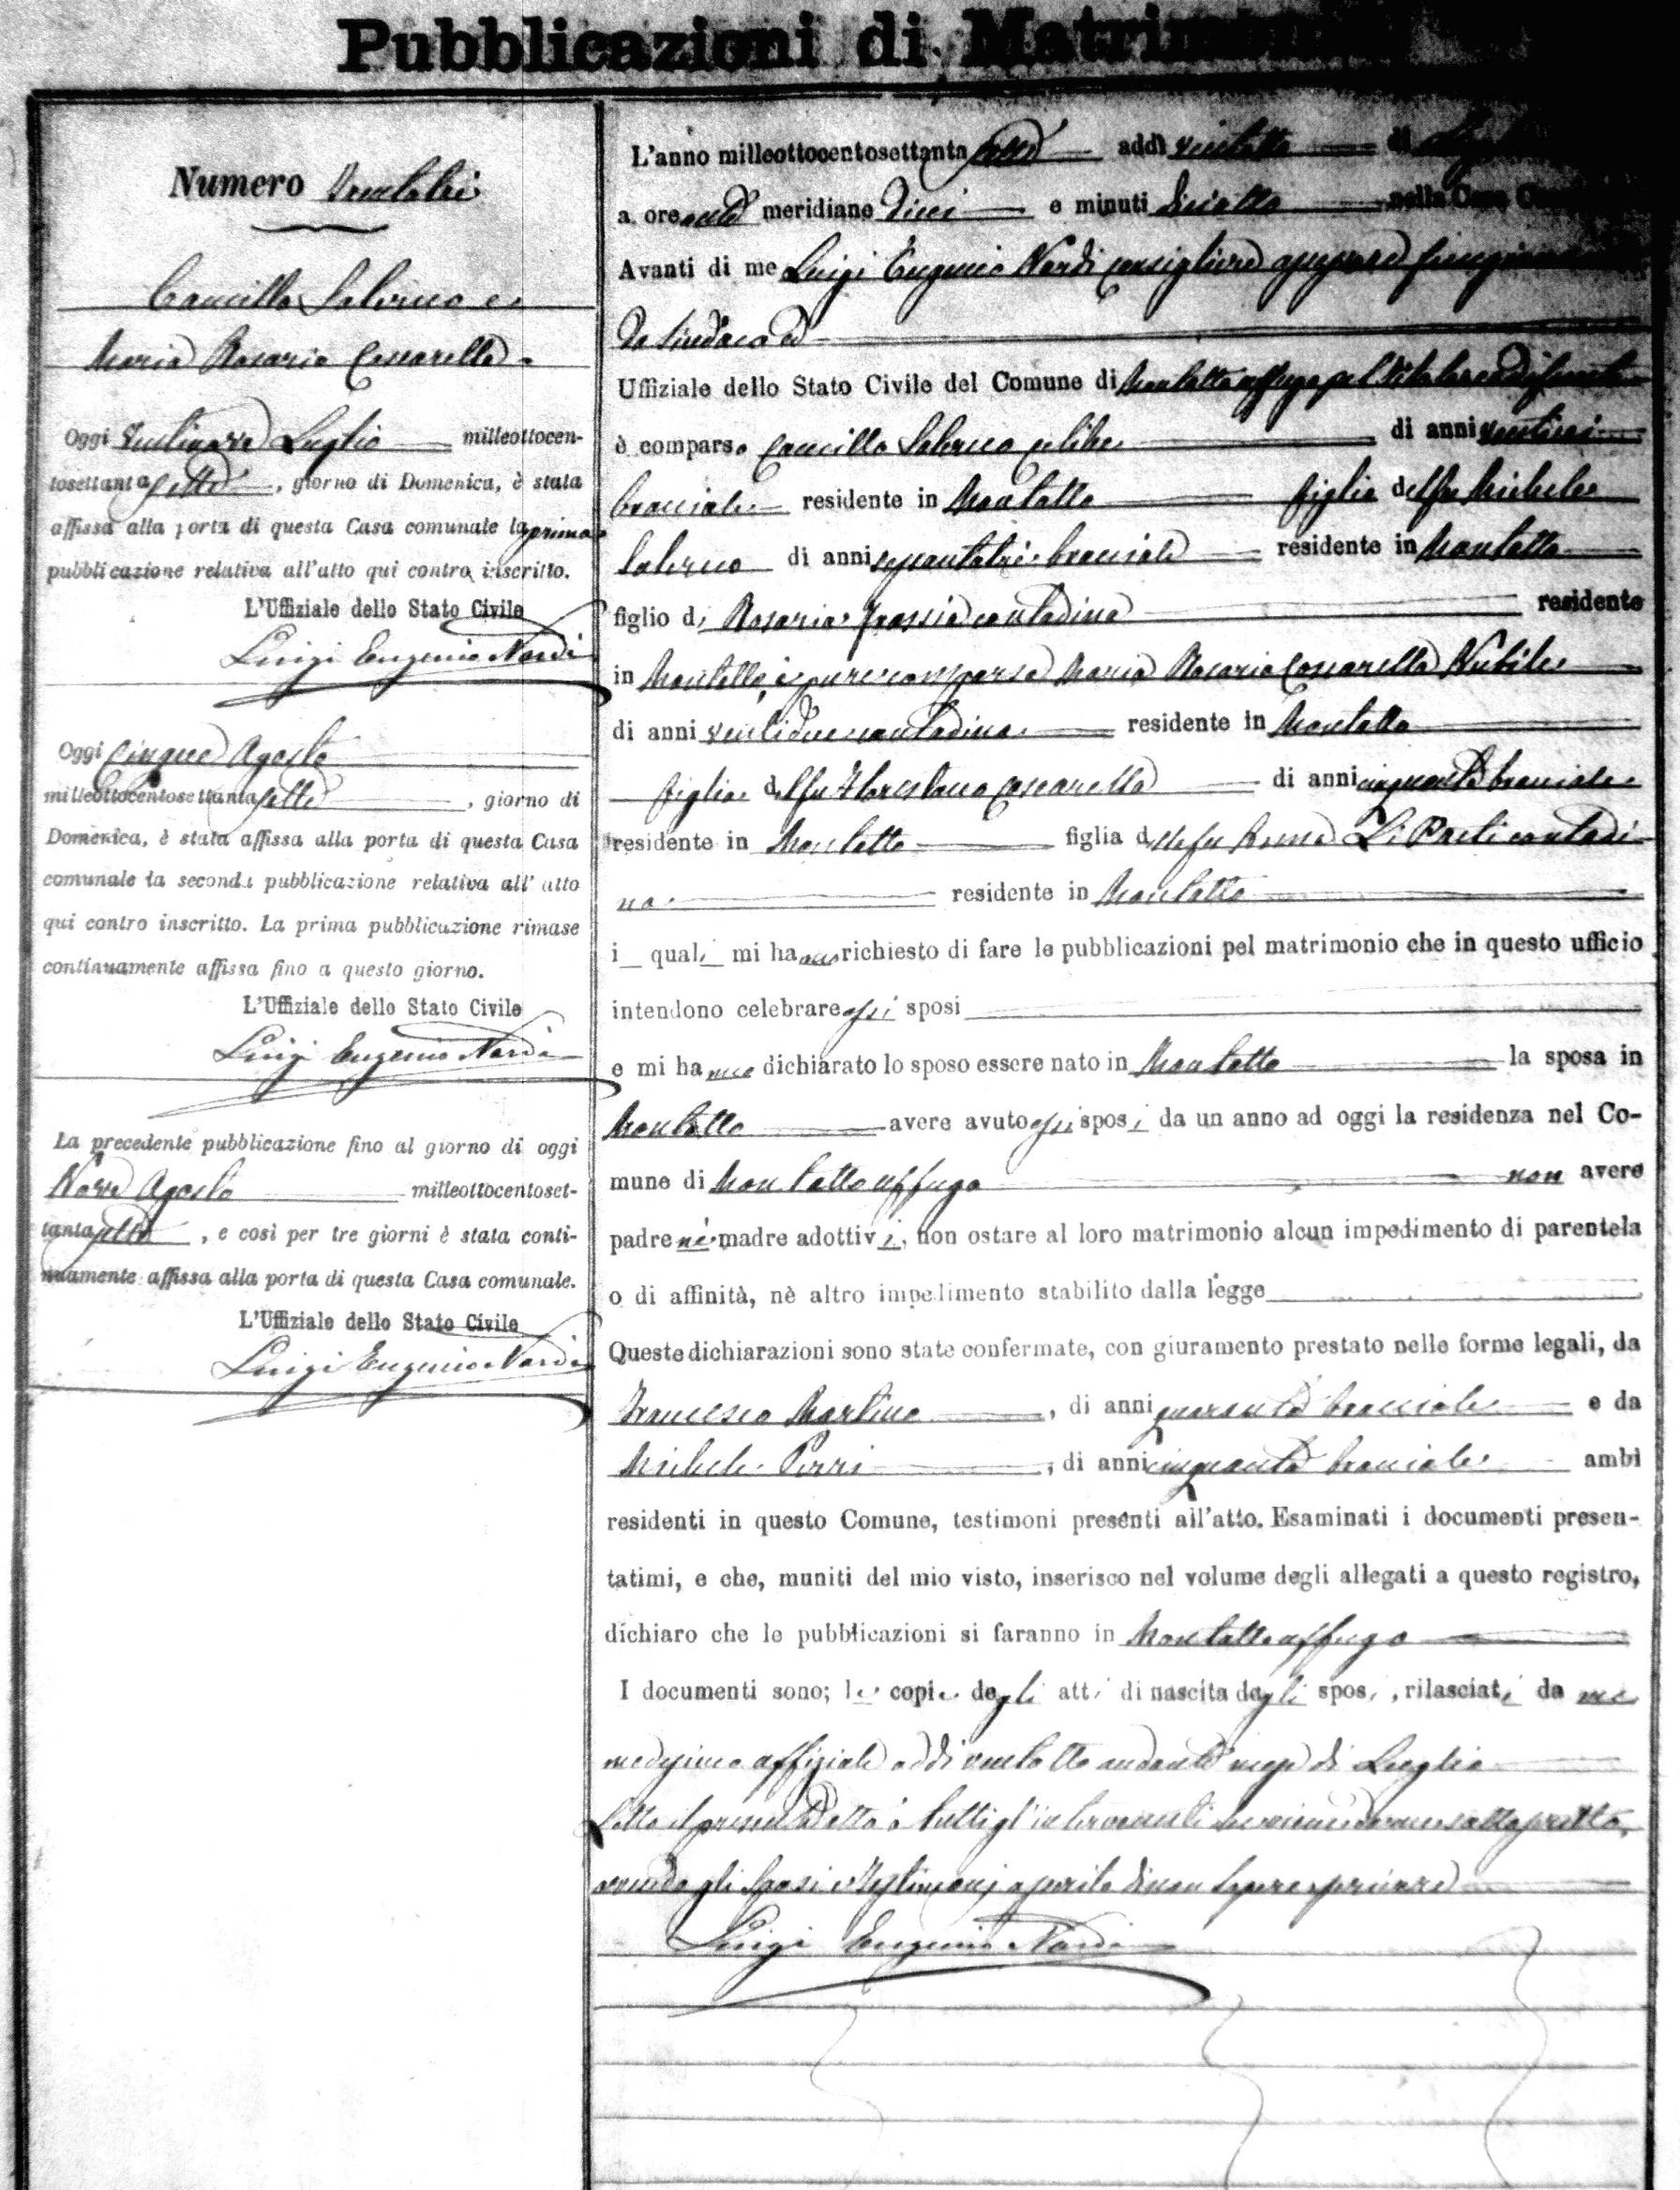 Pubblicazioni di Matrimonio
Numero Ventotri
Camillo Salerno e
Maria Rosaria Cascarella
Oggi Ventinove Luglio milleottocen-
tosettanta sette, giorno di Domenica, è stata
affissa alla porta di questa Casa comunale la prima
pubblicazione relativa all'atto qui contro inscritto.
L'Uffiziale dello Stato Civile
Luigi Eugenio Nardi
Oggi Cinque Agosto
milleottocentosettanta sette, giorno di
Domenica, è stata affissa alla porta di questa Casa
comunale la seconda pubblicazione relativa all' atto
qui contro inscritto. La prima pubblicazione rimase
continuamente affissa fino a questo giorno.
L'Uffiziale dello Stato Civile
Luigi Eugenio Nardi
La precedente pubblicazione fino al giorno di oggi
Nove Agosto milleottocentoset-
tanta sette, e così per tre giorni è stata conti-
nuamente affissa alla porta di questa Casa comunale.
L'Uffiziale dello Stato Civile
Luigi Eugenio Nardi
L'anno milleottocentosettanta sette addì ventotto di
a ore anti meridiane dieci e minuti nella Casa
Avanti di me Luigi Eugenio Nardi consigliere
da Sindaco ed
Uffiziale dello Stato Civile del Comune di Montalto Uffugo pel titolare
è comparso Camillo Salerno celibe di anni
bracciale residente in Montalto figlio del fu Michele
Salerno di anni bracciale residente in Montalto
figlio di Rosaria contadina residente
in Montalto, è pure comparsa Maria Rosaria Cascarella Nubile
di anni ventidue contadina residente in Montalto
figlia del fu Cascarella di anni cinquanta bracciale
residente in Montalto figlia della fu Li Preti contadi
na residente in Montalto
i quali mi hanno richiesto di fare le pubblicazioni pel matrimonio che in questo ufficio
intendono celebrare essi sposi
e mi hanno dichiarato lo sposo essere nato in Montalto la sposa in
Montalto avere avuto essi sposi da un anno ad oggi la residenza nel Co-
mune di Montalto Uffugo non avere
padre nè madre adottivi, non ostare al loro matrimonio alcun impedimento di parentela
o di affinità, nè altro impedimento stabilito dalla legge
Queste dichiarazioni sono state confermate, con giuramento prestato nelle forme legali, da
Francesco Martino, di anni quaranta bracciale e da
Michele Perri, di anni cinquanta bracciale ambi
residenti in questo Comune, testimoni presenti all'atto. Esaminati i documenti presen-
tatimi, e che, muniti del mio visto, inserisco nel volume degli allegati a questo registro,
dichiaro che le pubblicazioni si faranno in Montalto Uffugo
I documenti sono; le copie degli atti di nascita degli sposi, rilasciati da me
medesimo uffiziale addì ventotto andante mese di Luglio
Letto il presente atto a tutti gl'intervenuti
avendo gli sposi e testimonj asserito di non sapere scrivere
Luigi Eugenio Nardi